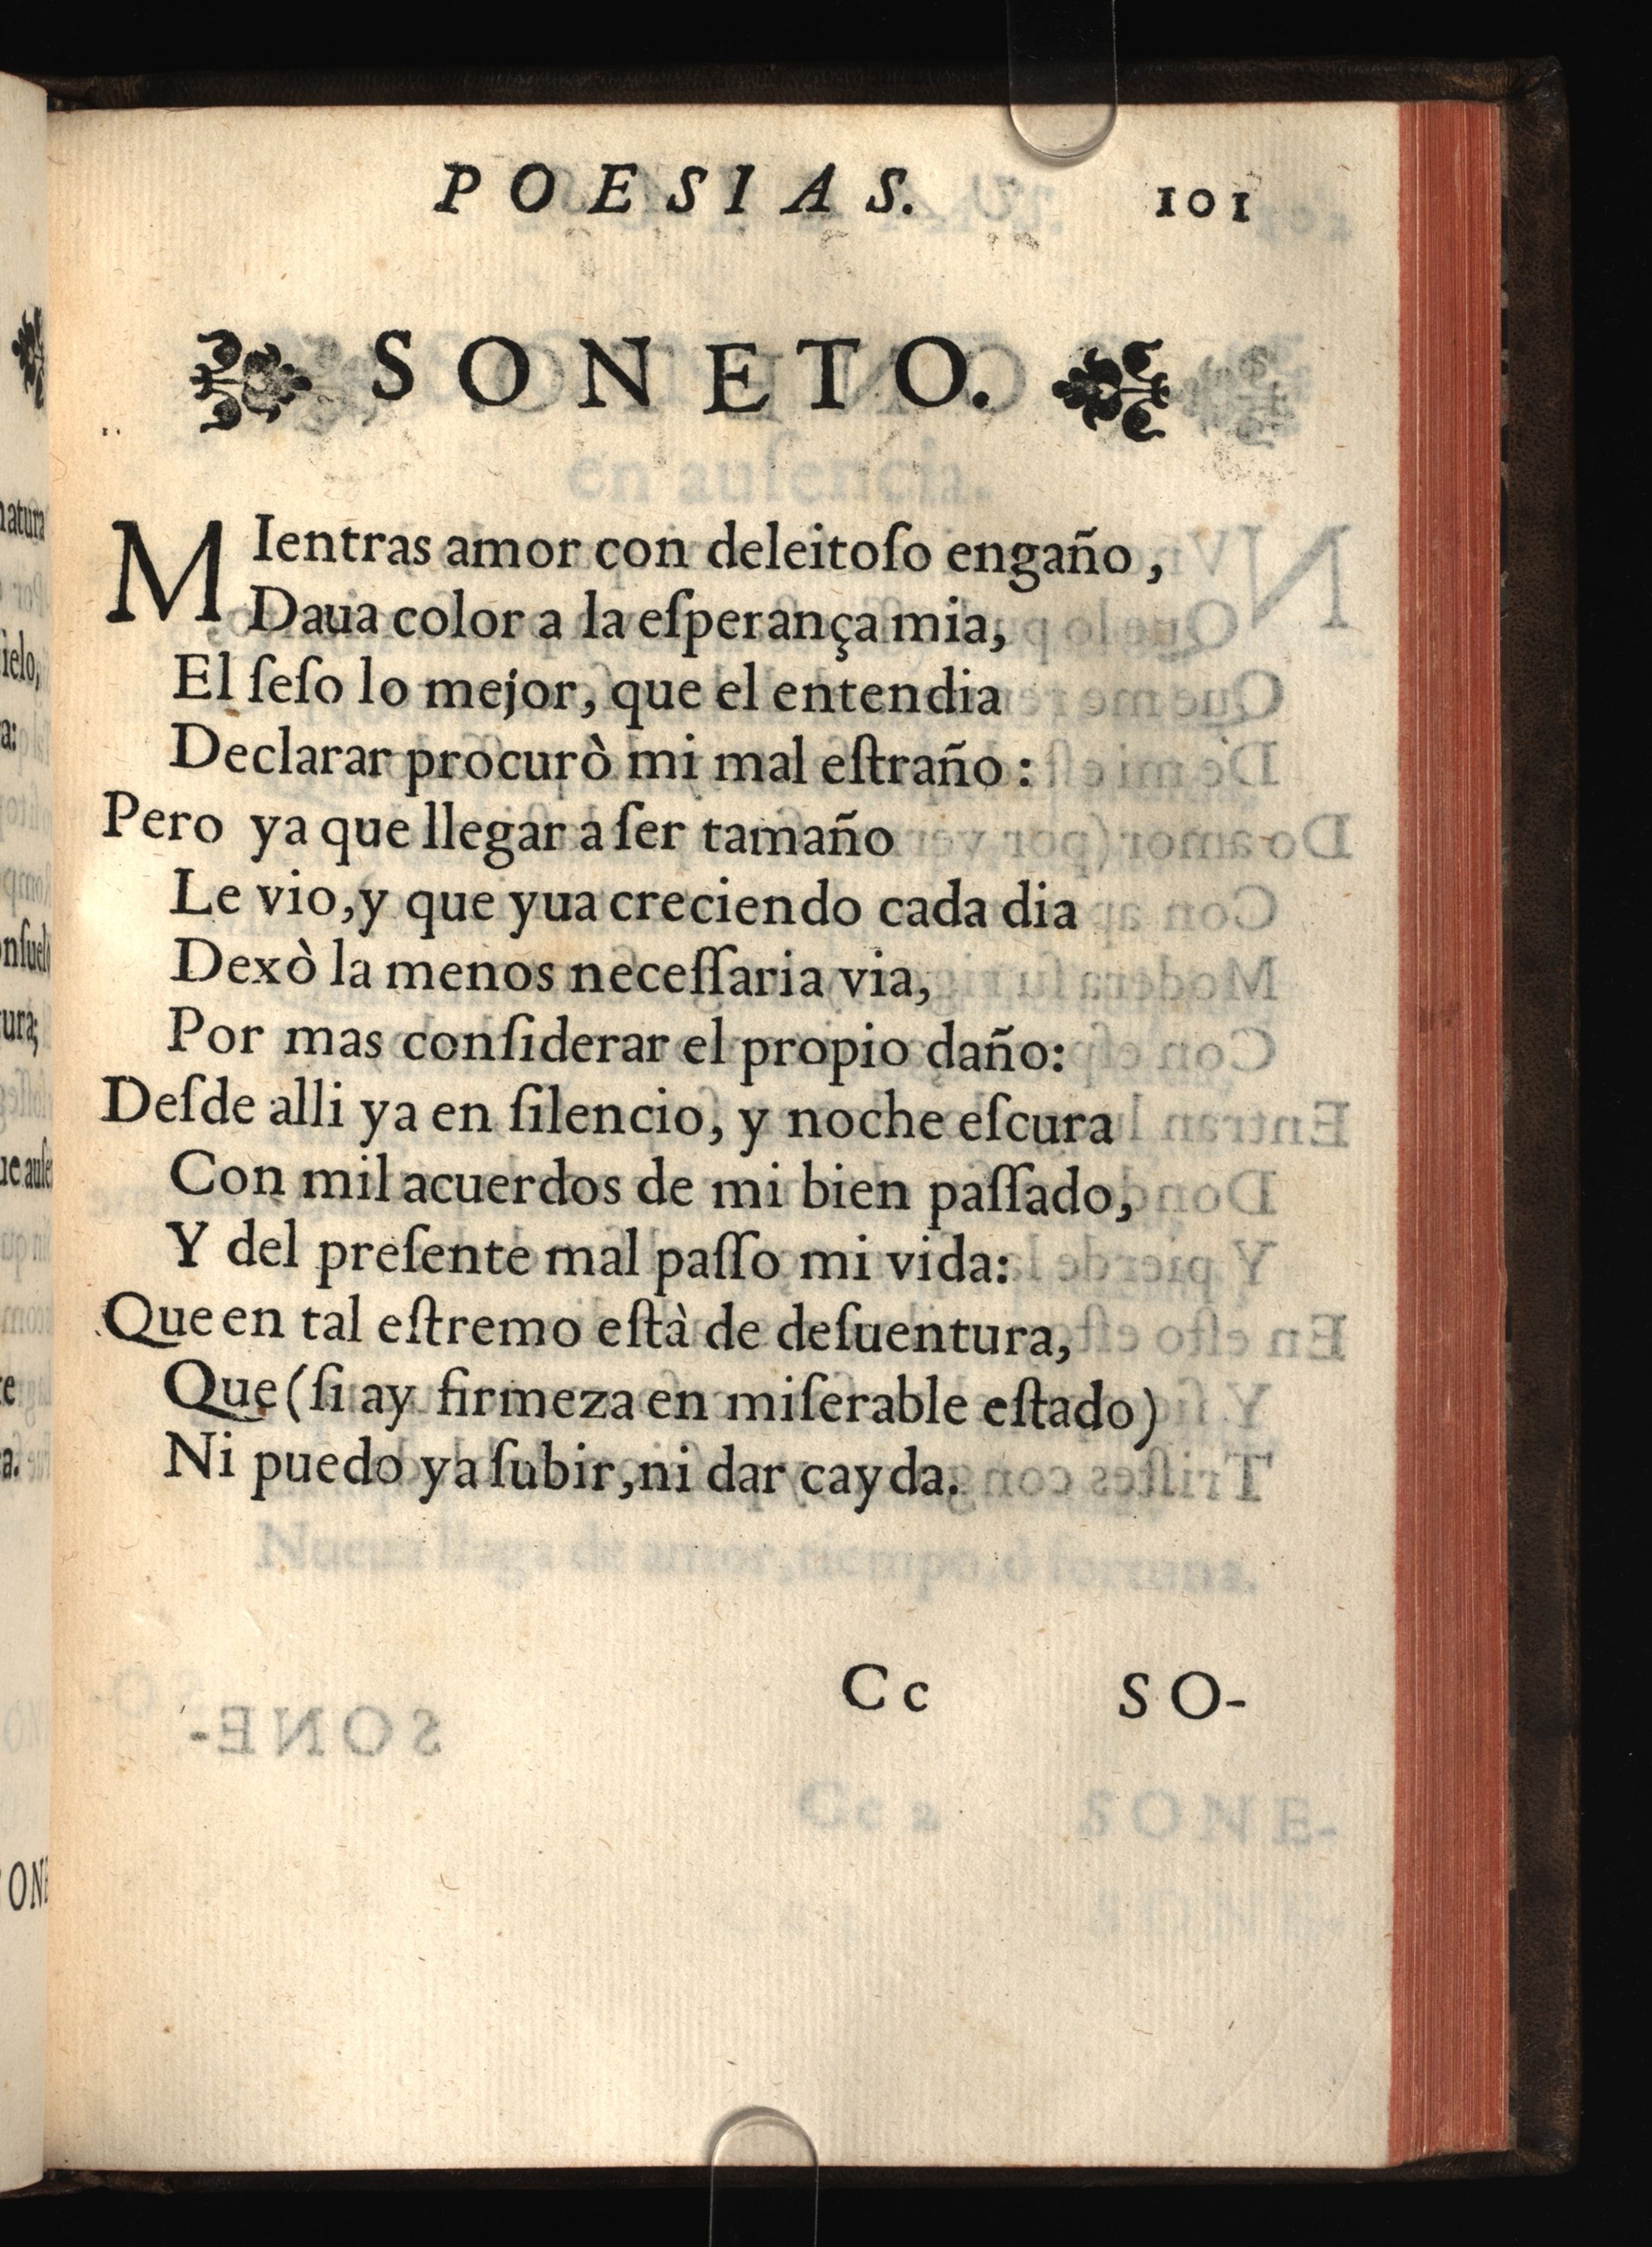 POESIAS. 101
SONETO.
MIentras amor con deleitoſo engaño,
Daua color a la eſperança mia,
El ſeſo lo mejor, que el entendia
Declarar procurò mi mal eſtraño:
Pero ya que llegar a ſer tamaño
Le vio, y que yua creciendo cada dia
Dexò la menos neceſſaria via,
Por mas conſiderar el propio daño:
Deſde alli ya en ſilencio, y noche eſcura
Con mil acuerdos de mi bien paſſado,
Y del preſente mal paſſo mi vida:
Que en tal eſtremo eſtà de deſuentura,
Que (ſi ay firmeza en miſerable eſtado)
Ni puedo ya ſubir, ni dar cayda.
Cc SO-